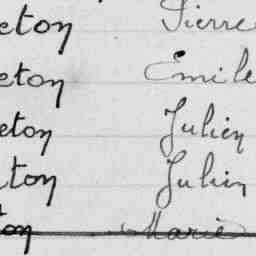 eton Pierre
eton Emile
eton Julien
eton Julien
ton Marie